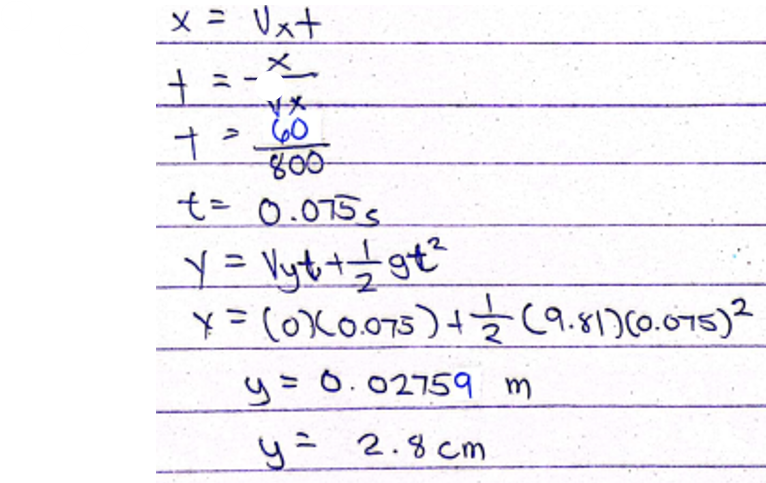 x = Vxt
t = -x/vx
t = 60/800
t = 0.075s
y = Vyt + 1/2 gt²
y = (0)(0.075) + 1/2 (9.81)(0.075)²
y = 0.02759 m
y = 2.8 cm